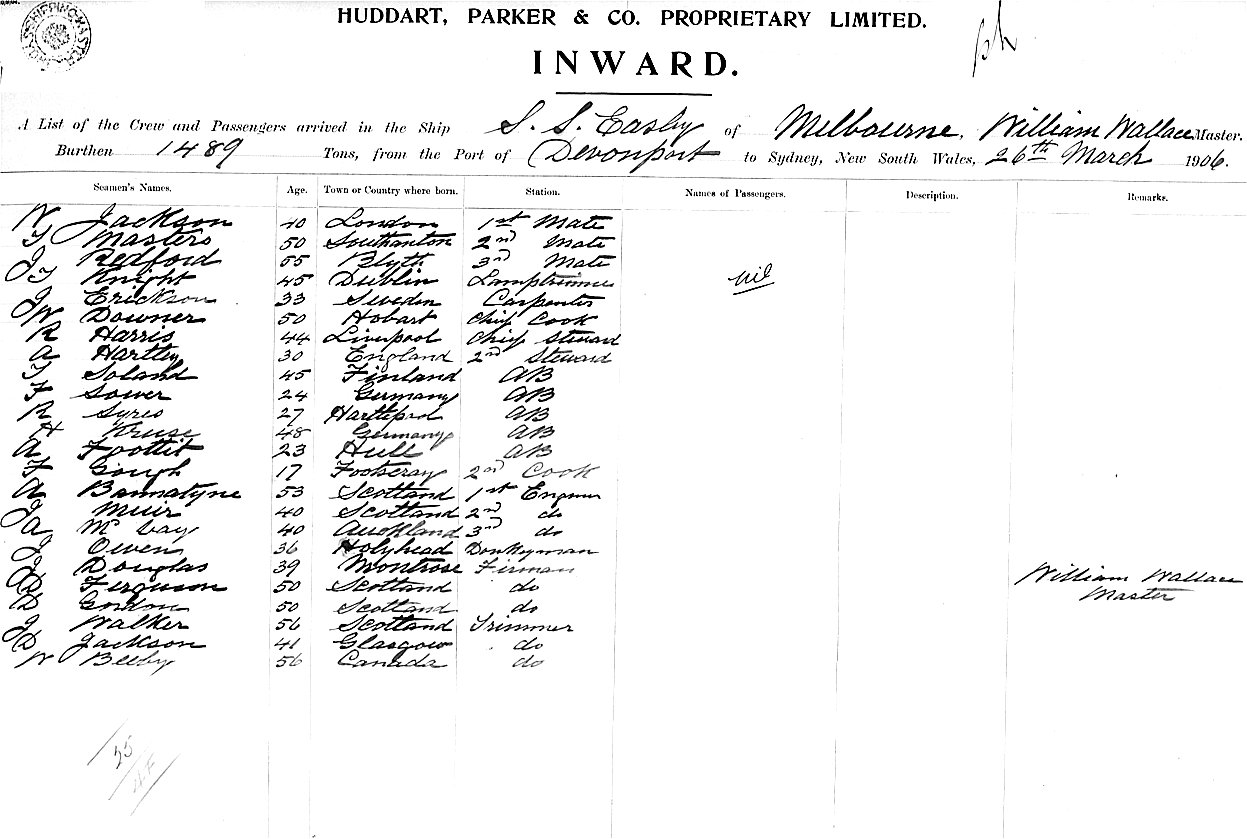 HUDDART, PARKER & CO. PROPRIETARY LIMITED.
INWARD.
A List of the Crew and Passengers arrived in the Ship S. S. Easby of Melbourne, William Wallace Master.
Burthen 1489 Tons, from the Port of Devonport to Sydney, New South Wales, 26th March 1906.
Seamen's Names. Age. Town or Country where born. Station. Names of Passengers. Description. Remarks.
W Jackson 40 London 1st Mate
Masters 50 Southanton 2nd Mate
Redford 55 Blyth 3rd Mate
Knight 45 Dublin Lamptrimmer
nil
Erickson 33 Sweden Carpenter
W Downer 50 Hobart Chief Cook
R Harris 44 Liverpool Chief Steward
A Hartley 30 England 2nd Steward
Soland 45 Finland AB
F Sower 24 Germany AB
R Syres 27 Hartlepool AB
H Kruse 48 Germany AB
A Foottit 23 Hull AB
F Gough 17 Footscray 2nd Cook
A Bannatyne 53 Scotland 1st Engineer
J Muir 40 Scotland 2nd do
A Mc 40 Auckland 3rd do
J Owen 36 Holyhead Donkeyman
J Douglas 39 Montrose Firman
D Ferguson 50 Scotland do
D Gordon 50 Scotland do
J Walker 56 Scotland Trimmer
D Jackson 41 Glasgow do
W Beeby 56 Canada do
William Wallace
Master
25